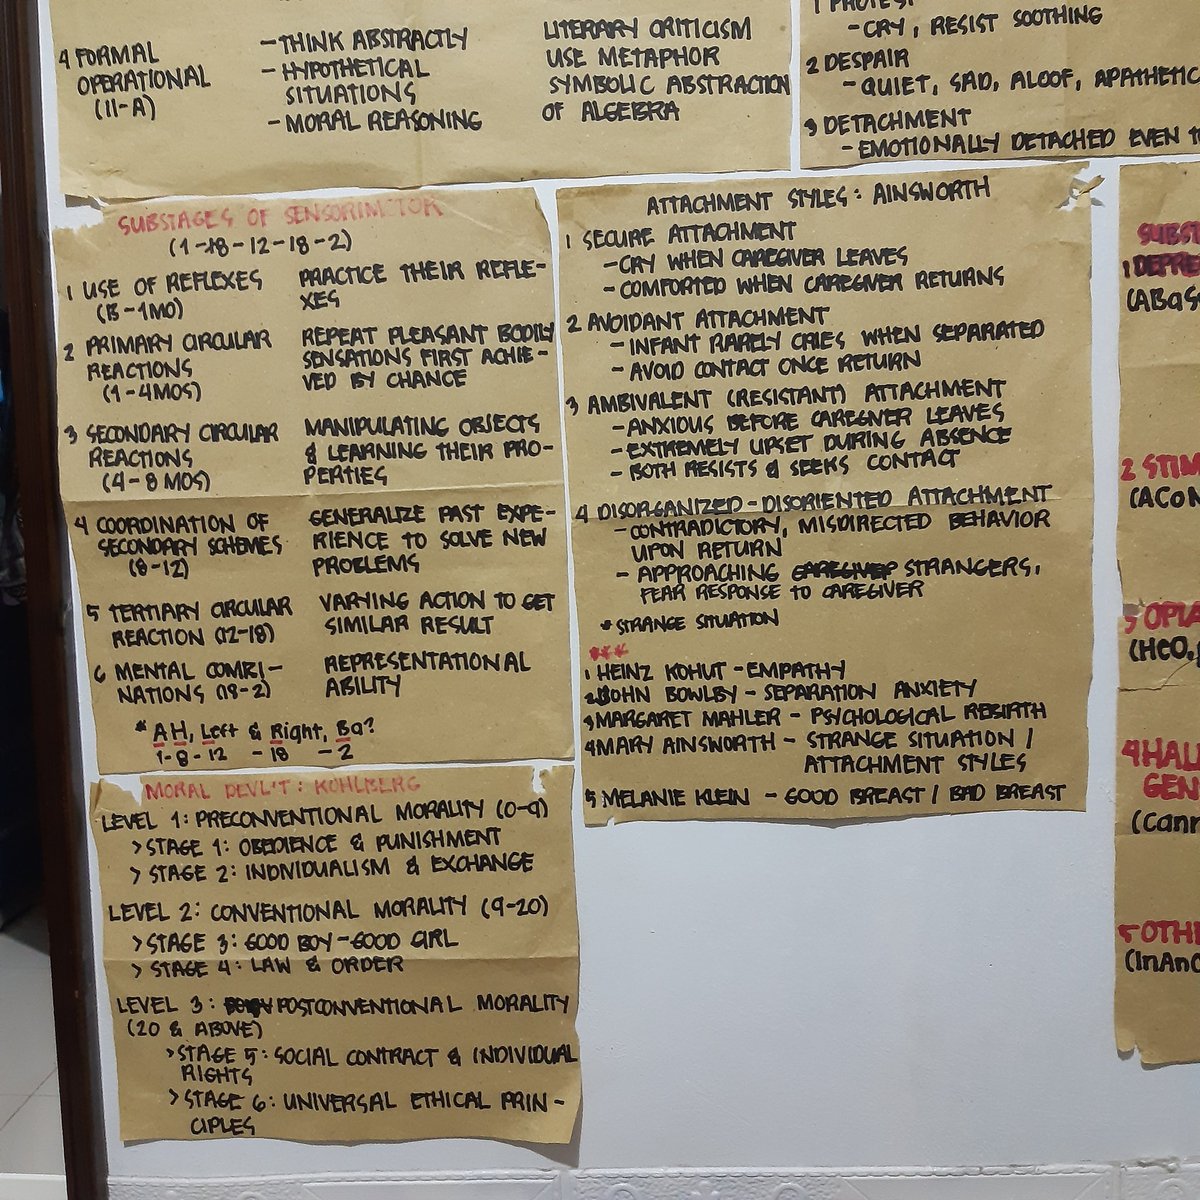 4 FORMAL
OPERATIONAL
(11-A)
-THINK ABSTRACTLY
-HYPOTHETICAL
SITUATIONS
-MORAL REASONING
LITERARY CRITICISM
USE METAPHOR
SYMBOLIC ABSTRACTION
OF ALGEBRA
1 PROTEST
-CRY, RESIST SOOTHING
2 DESPAIR
-QUIET, SAD, ALOOF, APATHETIC
3 DETACHMENT
-EMOTIONALLY DETACHED EVEN
SUBSTAGES OF SENSORIMOTOR
(1-18-12-18-2)
1 USE OF REFLEXES
(B-1MO)
PRACTICE THEIR REFLE-
XES
2 PRIMARY CIRCULAR
REACTIONS
(1-4MOS)
REPEAT PLEASANT BODILY
SENSATIONS FIRST ACHIE-
VED BY CHANCE
3 SECONDARY CIRCULAR
REACTIONS
(4-8 MOS)
MANIPULATING OBJECTS
& LEARNING THEIR PRO-
PERTIES
4 COORDINATION OF
SECONDARY SCHEMES
(8-12)
GENERALIZE PAST EXPE-
RIENCE TO SOLVE NEW
PROBLEMS
5 TERTIARY CIRCULAR
REACTION (12-18)
VARYING ACTION TO GET
SIMILAR RESULT
6 MENTAL COMBI-
NATIONS (18-2)
REPRESENTATIONAL
ABILITY
* AH, Left & Right, Ba?
1-8-12 -18 -2
ATTACHMENT STYLES: AINSWORTH
1 SECURE ATTACHMENT
-CRY WHEN CAREGIVER LEAVES
-COMFORTED WHEN CAREGIVER RETURNS
2 AVOIDANT ATTACHMENT
-INFANT RARELY CRIES WHEN SEPARATED
-AVOID CONTACT ONCE RETURN
3 AMBIVALENT (RESISTANT) ATTACHMENT
-ANXIOUS BEFORE CAREGIVER LEAVES
-EXTREMELY UPSET DURING ABSENCE
-BOTH RESISTS & SEEKS CONTACT
4 DISORGANIZED-DISORIENTED ATTACHMENT
-CONTRADICTORY, MISDIRECTED BEHAVIOR
UPON RETURN
-APPROACHING CAREGIVER STRANGERS,
FEAR RESPONSE TO CAREGIVER
* STRANGE SITUATION
***
1 HEINZ KOHUT -EMPATHY
2 JOHN BOWLBY - SEPARATION ANXIETY
3 MARGARET MAHLER - PSYCHOLOGICAL REBIRTH
4 MARY AINSWORTH - STRANGE SITUATION /
ATTACHMENT STYLES
5 MELANIE KLEIN - GOOD BREAST / BAD BREAST
MORAL DEVL'T: KOHLBERG
LEVEL 1: PRECONVENTIONAL MORALITY (0-9)
>STAGE 1: OBEDIENCE & PUNISHMENT
>STAGE 2: INDIVIDUALISM & EXCHANGE
LEVEL 2: CONVENTIONAL MORALITY (9-20)
>STAGE 3: GOOD BOY-GOOD GIRL
>STAGE 4: LAW & ORDER
LEVEL 3: POSTCONVENTIONAL MORALITY
(20 & ABOVE)
>STAGE 5: SOCIAL CONTRACT & INDIVIDUAL
RIGHTS
>STAGE 6: UNIVERSAL ETHICAL PRIN-
CIPLES
SUBST
1 DEPRE
(ABaS
2 STIM
(ACoN
3 OPI
(HeO,
4 HALL
GEN
(Cann
5 OTHE
(InAnO